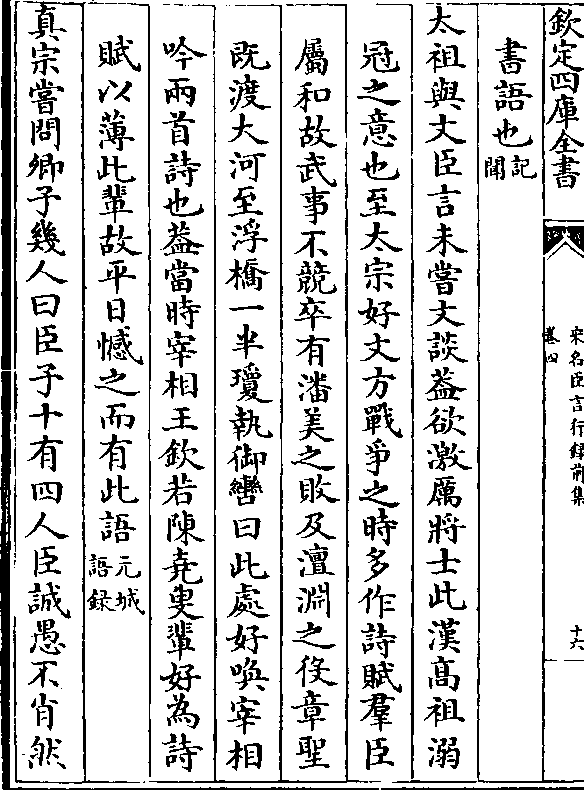 欽定四庫全書
宋名臣言行錄前集
卷四
十六
書語也記聞
太祖與文臣言未嘗文談葢欲激厲將士此漢髙祖溺
冠之意也至太宗好文方戰爭之時多作詩賦羣臣
屬和故武事不競卒有潘美之敗及澶淵之役章聖
既渡大河至浮橋一半瓊執御轡曰此處好喚宰相
吟兩首詩也葢當時宰相王欽若陳堯叟輩好為詩
賦以薄此輩故平日憾之而有此語元城語録
真宗嘗問卿子幾人曰臣子十有四人臣誠愚不肖然